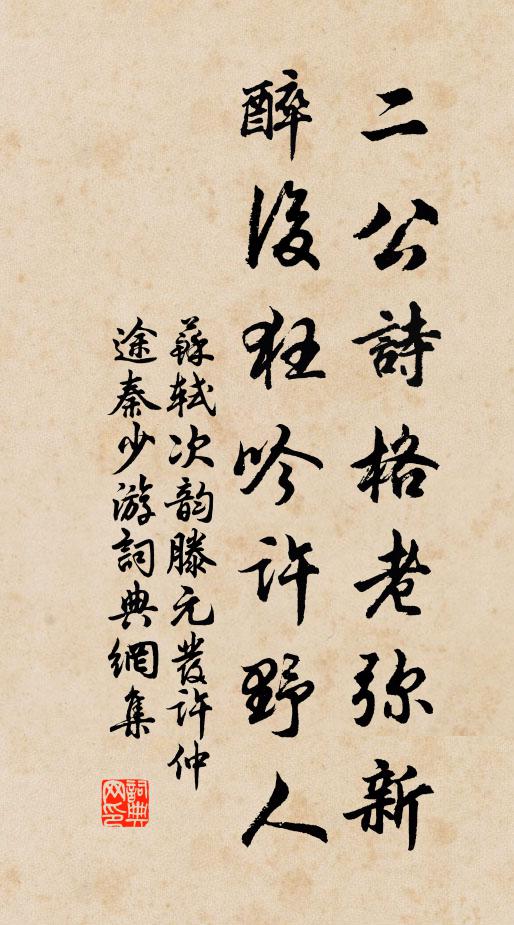 二公詩格老弥新
醉後狂吟許野人
蘇軾次韵滕元發許仲
途秦少游詞典網集
詞典网印